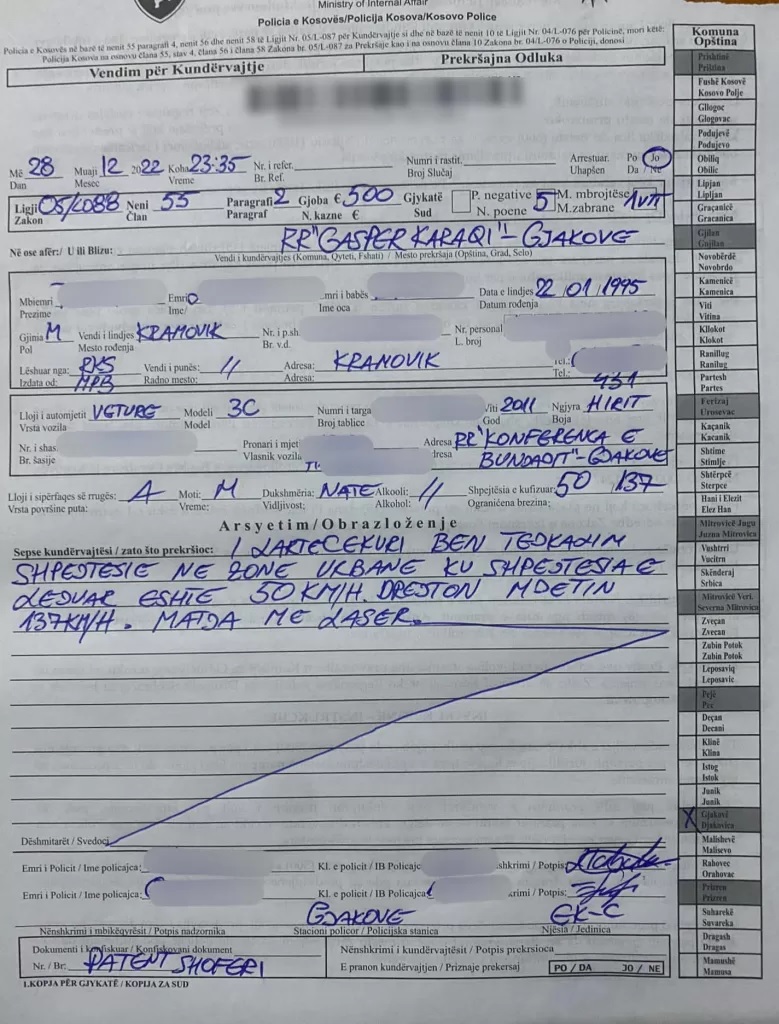 Ministry of Internal Affair
Policia e Kosovës/Policija Kosova/Kosovo Police
Policia e Kosovës në bazë të nenit 55 paragrafi 4, nenit 56 dhe nenit 58 të Ligjit Nr. 05/L-087 për Kundërvajtje si dhe në bazë të nenit 10 të Ligjit Nr. 04/L-076 për Policinë, mori këtë:
Policija Kosova na osnovu člana 55, stav 4, člana 56 i člana 58 Zakona br. 05/L-087 za Prekršaje kao i na osnovu člana 10 Zakona br. 04/L-076 o Policiji, donosi
Vendim për Kundërvajtje Prekršajna Odluka
Më 28 Muaji 12 2022 Koha 23:35 Nr. i refer. Numri i rastit. Arrestuar. Po Jo
Dan Mesec Vreme Br. Ref. Broj Slučaj Uhapšen Da / Ne
Ligji 05/L088 Neni 55 Paragrafi 2 Gjoba € 500 Gjykatë P. negative 5 M. mbrojtëse 1 VIT
Zakon Član Paragraf N. kazne € Sud N. poene M.zabrane
RR"GASPER KARAQI"-GJAKOVE
Në ose afër:/ U ili Blizu:
Vendi i kundërvajtjes (Komuna, Qyteti, Fshati) / Mesto prekršaja (Opština, Grad, Selo)
Mbiemri Emri mri i babës Data e lindjes 22 01 1995
Prezime Ime/ Ime oca Datum rođenja
Gjinia M Vendi i lindjes KRAMOVIK Nr. i p.sh Nr. personal
Pol Mesto rođenja Br. v.d. L. broj
Lëshuar nga: RKS Vendi i punës: // Adresa: KRAMOVIK Tel.:
Izdata od: MPB Radno mesto: Adresa: Tel.: 431
Lloji i automjetit VETURE Modeli 3C Numri i targa Viti 2011 Ngjyra HIRIT
Vrsta vozila Model Broj tablice God Boja
Nr. i shas. Pronari i mjet Adresa RR"KONFERENCA E
Br. šasije Vlasnik vozila dresa BUNJAJIT"-GJAKOVE
Lloji i sipërfaqes së rrugës: A Moti: M Dukshmëria: NATE Alkooli: // Shpejtësia e kufizuar: 50 137
Vrsta površine puta: Vreme: Vidljivost: Alkohol: Ograničena brezina:
Arsyetim/Obrazloženje
Sepse kundërvajtësi / zato što prekršioc: I LARTECEKURI BEN TEJKALIM
SHPEJTESIE NE ZONE URBANE KU SHPEJTESIA E
LEJUAR ESHTE 50 KM/H. DREJTON MJETIN
137KM/H. MATJA ME LASER.
Dëshmitarët / Svedoci
Emri i Policit / Ime policajca: Kl. e policit / IB Policajc shkrimi / Potpis:
Emri i Policit / Ime policajca: Kl. e policit / IB Policajc krimi / Potpis:
GJAKOVE EK-C
Nënshkrimi i mbikëqyrësit / Potpis nadzornika Stacioni policor / Policijska stanica Njësia / Jedinica
Dokumenti i konfiskuar / Konfiskovani dokument Nënshkrimi i kundërvajtësit / Potpis prekrsioca
Nr. / Br: PATENT SHOFERI E pranon kundërvajtjen / Priznaje prekersaj PO / DA JO / NE
1.KOPJA PËR GJYKATË / KOPIJA ZA SUD
Komuna
Opština
Prishtinë
Priština
Fushë Kosovë
Kosovo Polje
Gllogoc
Glogovac
Podujevë
Podujevo
Obiliq
Obilic
Lipjan
Lipljan
Graçanicë
Gracanica
Gjilan
Gnjilan
Novobërdë
Novobrdo
Kamenicë
Kamenica
Viti
Vitina
Kllokot
Klokot
Ranillug
Ranilug
Partesh
Partes
Ferizaj
Urosevac
Kaçanik
Kacanik
Shtime
Stimlje
Shtërpcë
Sterpce
Hani i Elezit
Elez Han
Mitrovicë Jugu
Juzna Mitrovica
Vushtrri
Vucitrn
Skënderaj
Srbica
Mitrovicë Veri.
Severna Mitrovica
Zveçan
Zvecan
Zubin Potok
Zubin Potok
Leposaviq
Leposavic
Pejë
Pec
Deçan
Decani
Klinë
Klina
Istog
Istok
Junik
Junik
X Gjakovë
Djakovica
Malishevë
Malisevo
Rahovec
Orahovac
Prizren
Prizren
Suharekë
Suvareka
Dragash
Dragas
Mamushë
Mamusa